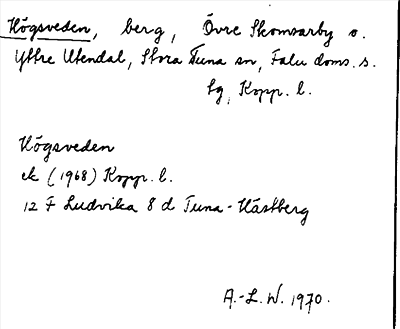 Högsveden, berg, Övre Skomsarby o.
Yttre Utendal, Stora Tuna sn, Falu doms. s.
tg, Kopp. l.
Högsveden
ek (1968) Kopp. l.
12 F Ludvika 8 d Tuna-Hästberg
A.-L. W. 1970.